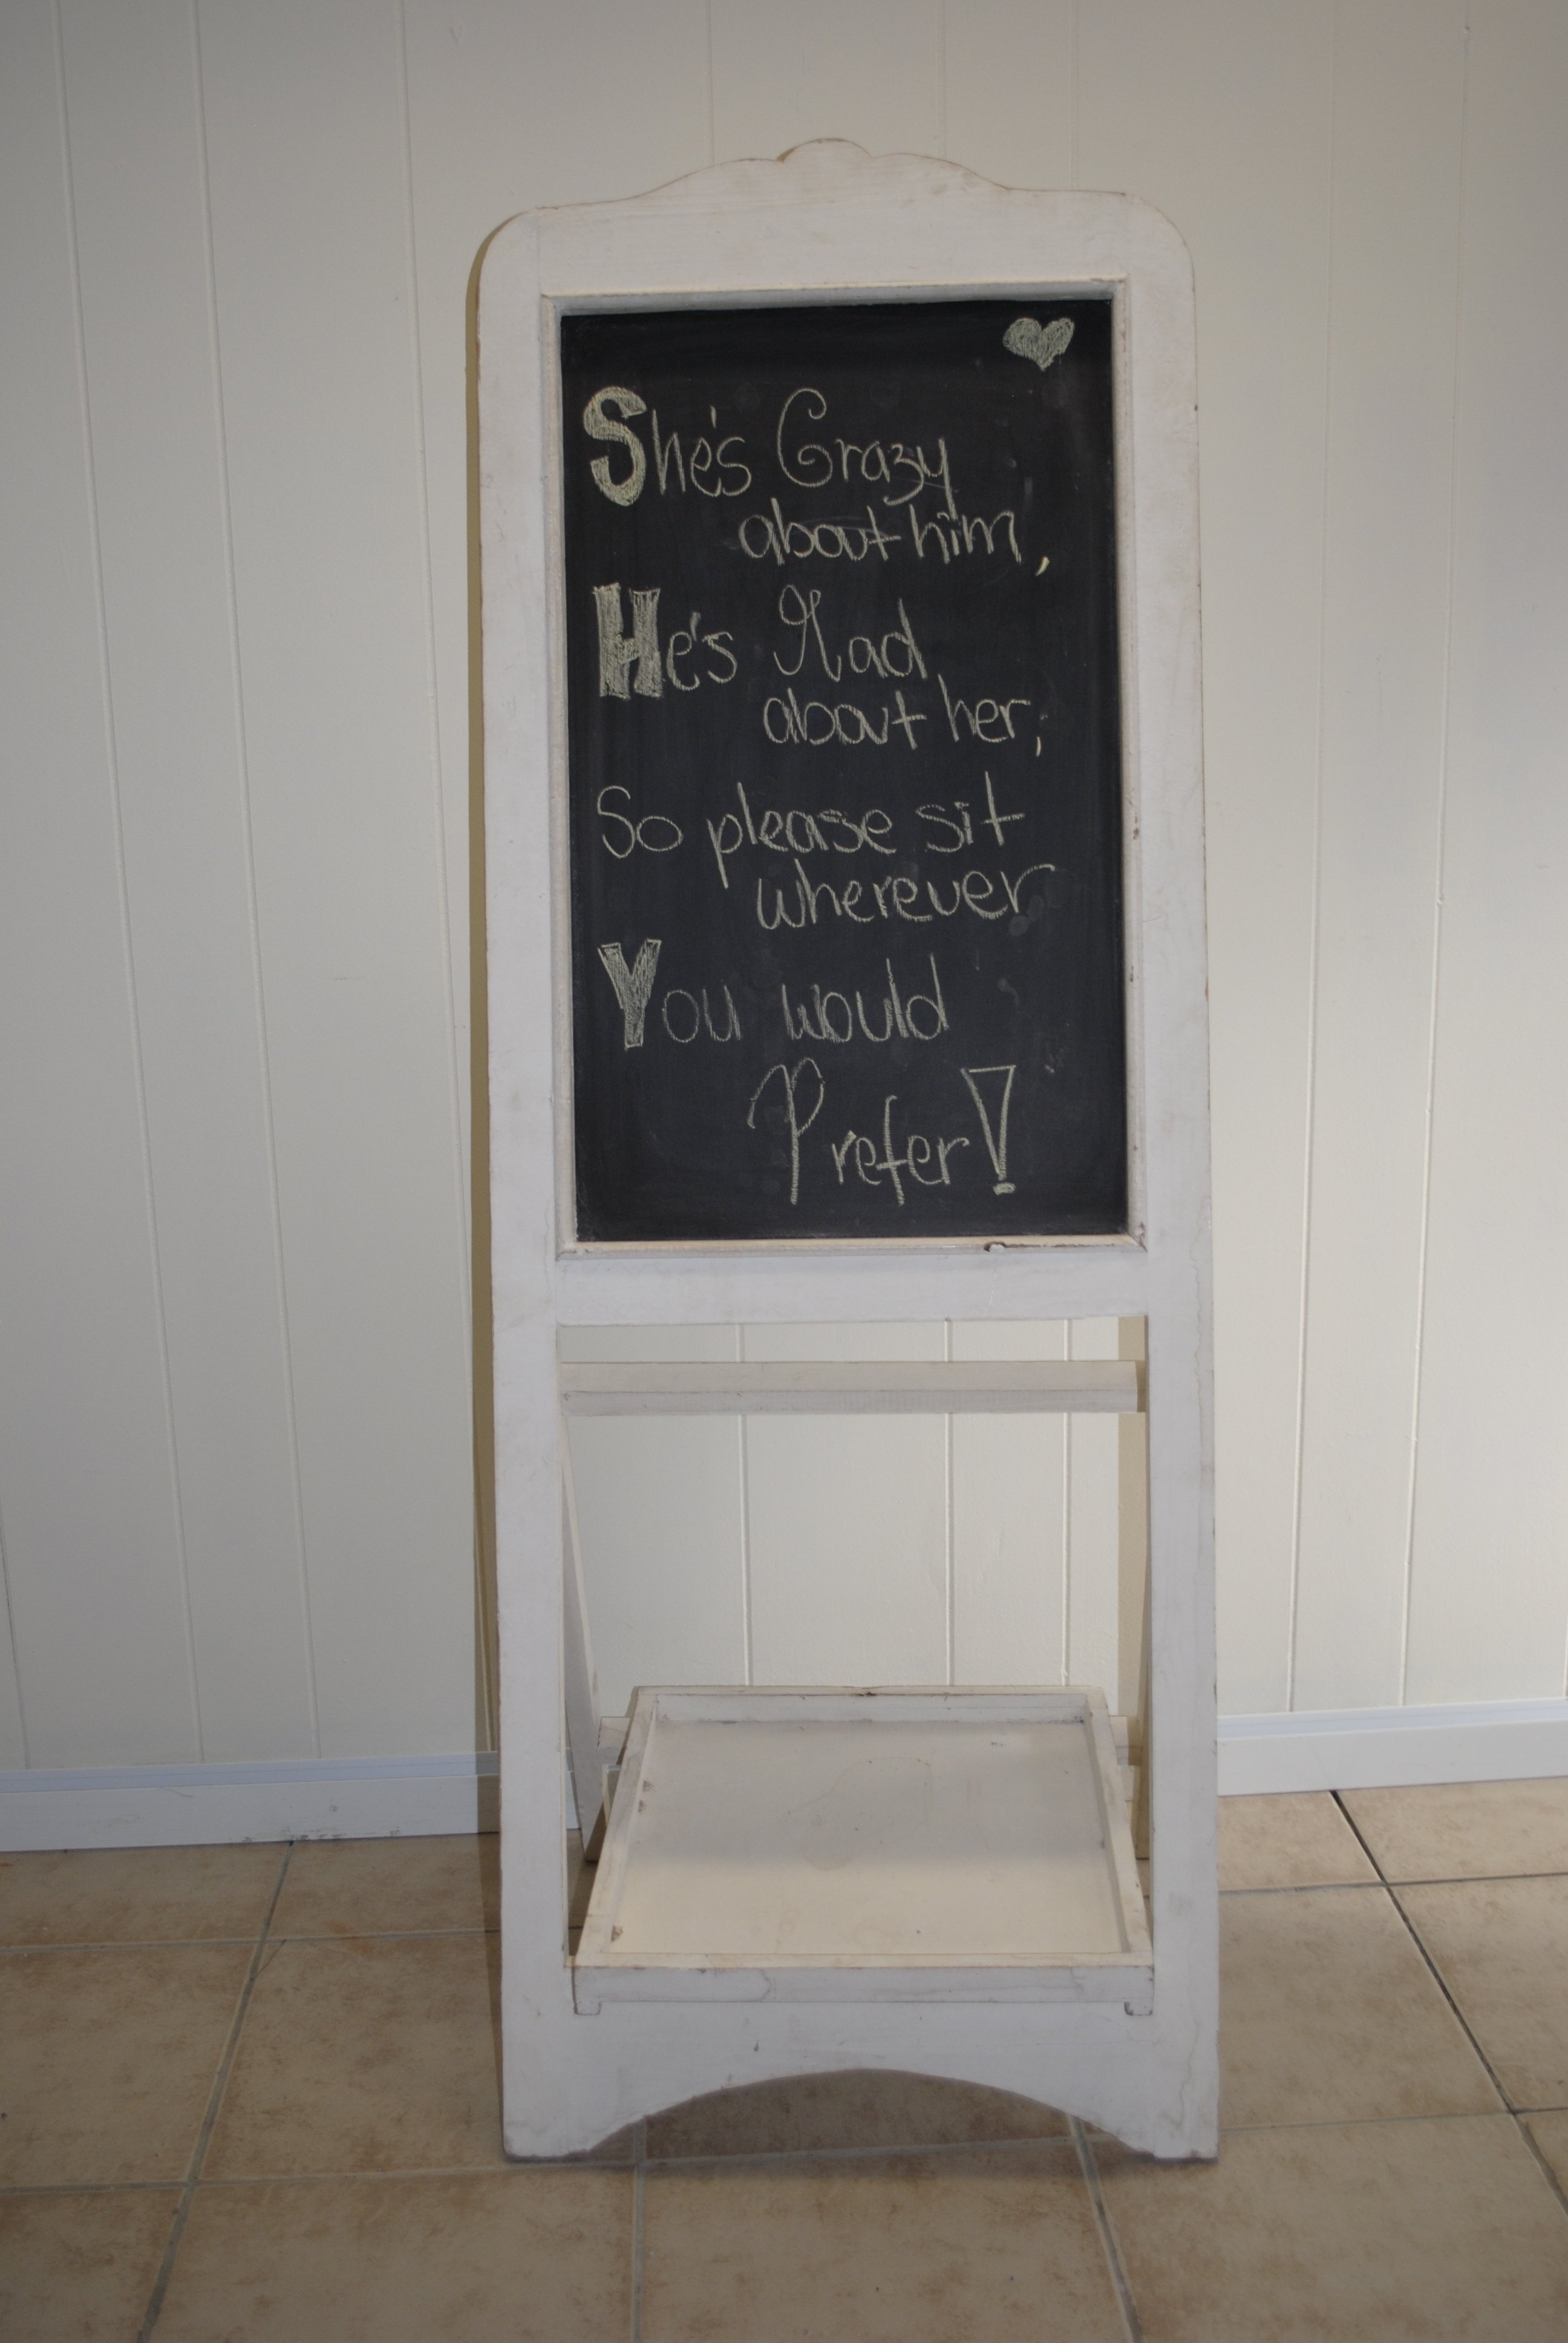 She's Crazy
about him,
He's Mad
about her;
So please sit
wherever
You would
Prefer!